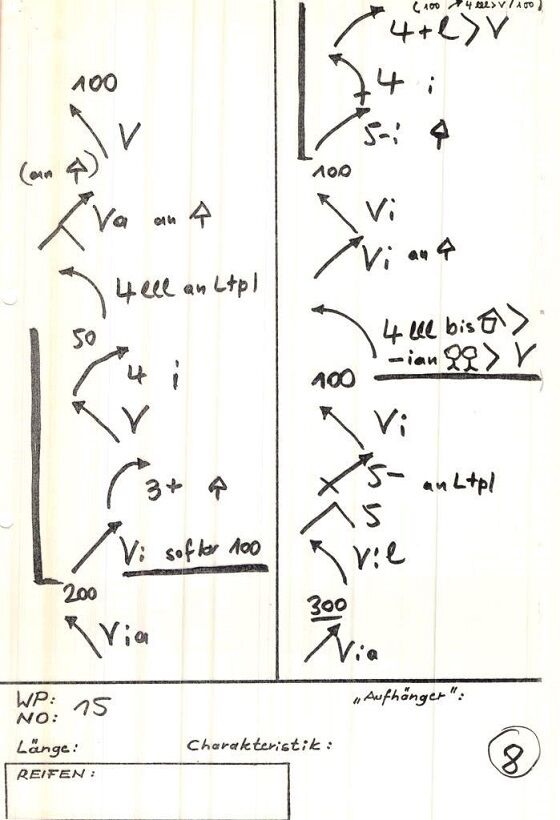 100
V
(an ⇧)
Va an ⇧
4 lll an Ltpl
50
4 i
V
3+ ⇧
Vi softer 100
200
Via
(100 ↗ 4 lll > V / 100)
4 + l > V
4 i
5-i ⇧
100
Vi
Vi an ⇧
4 lll bis >
-i an > V
100
Vi
5- an Ltpl
5
Vil
300
Via
WP:
NO: 15
„Aufhänger":
Länge: Charakteristik:
8
REIFEN: